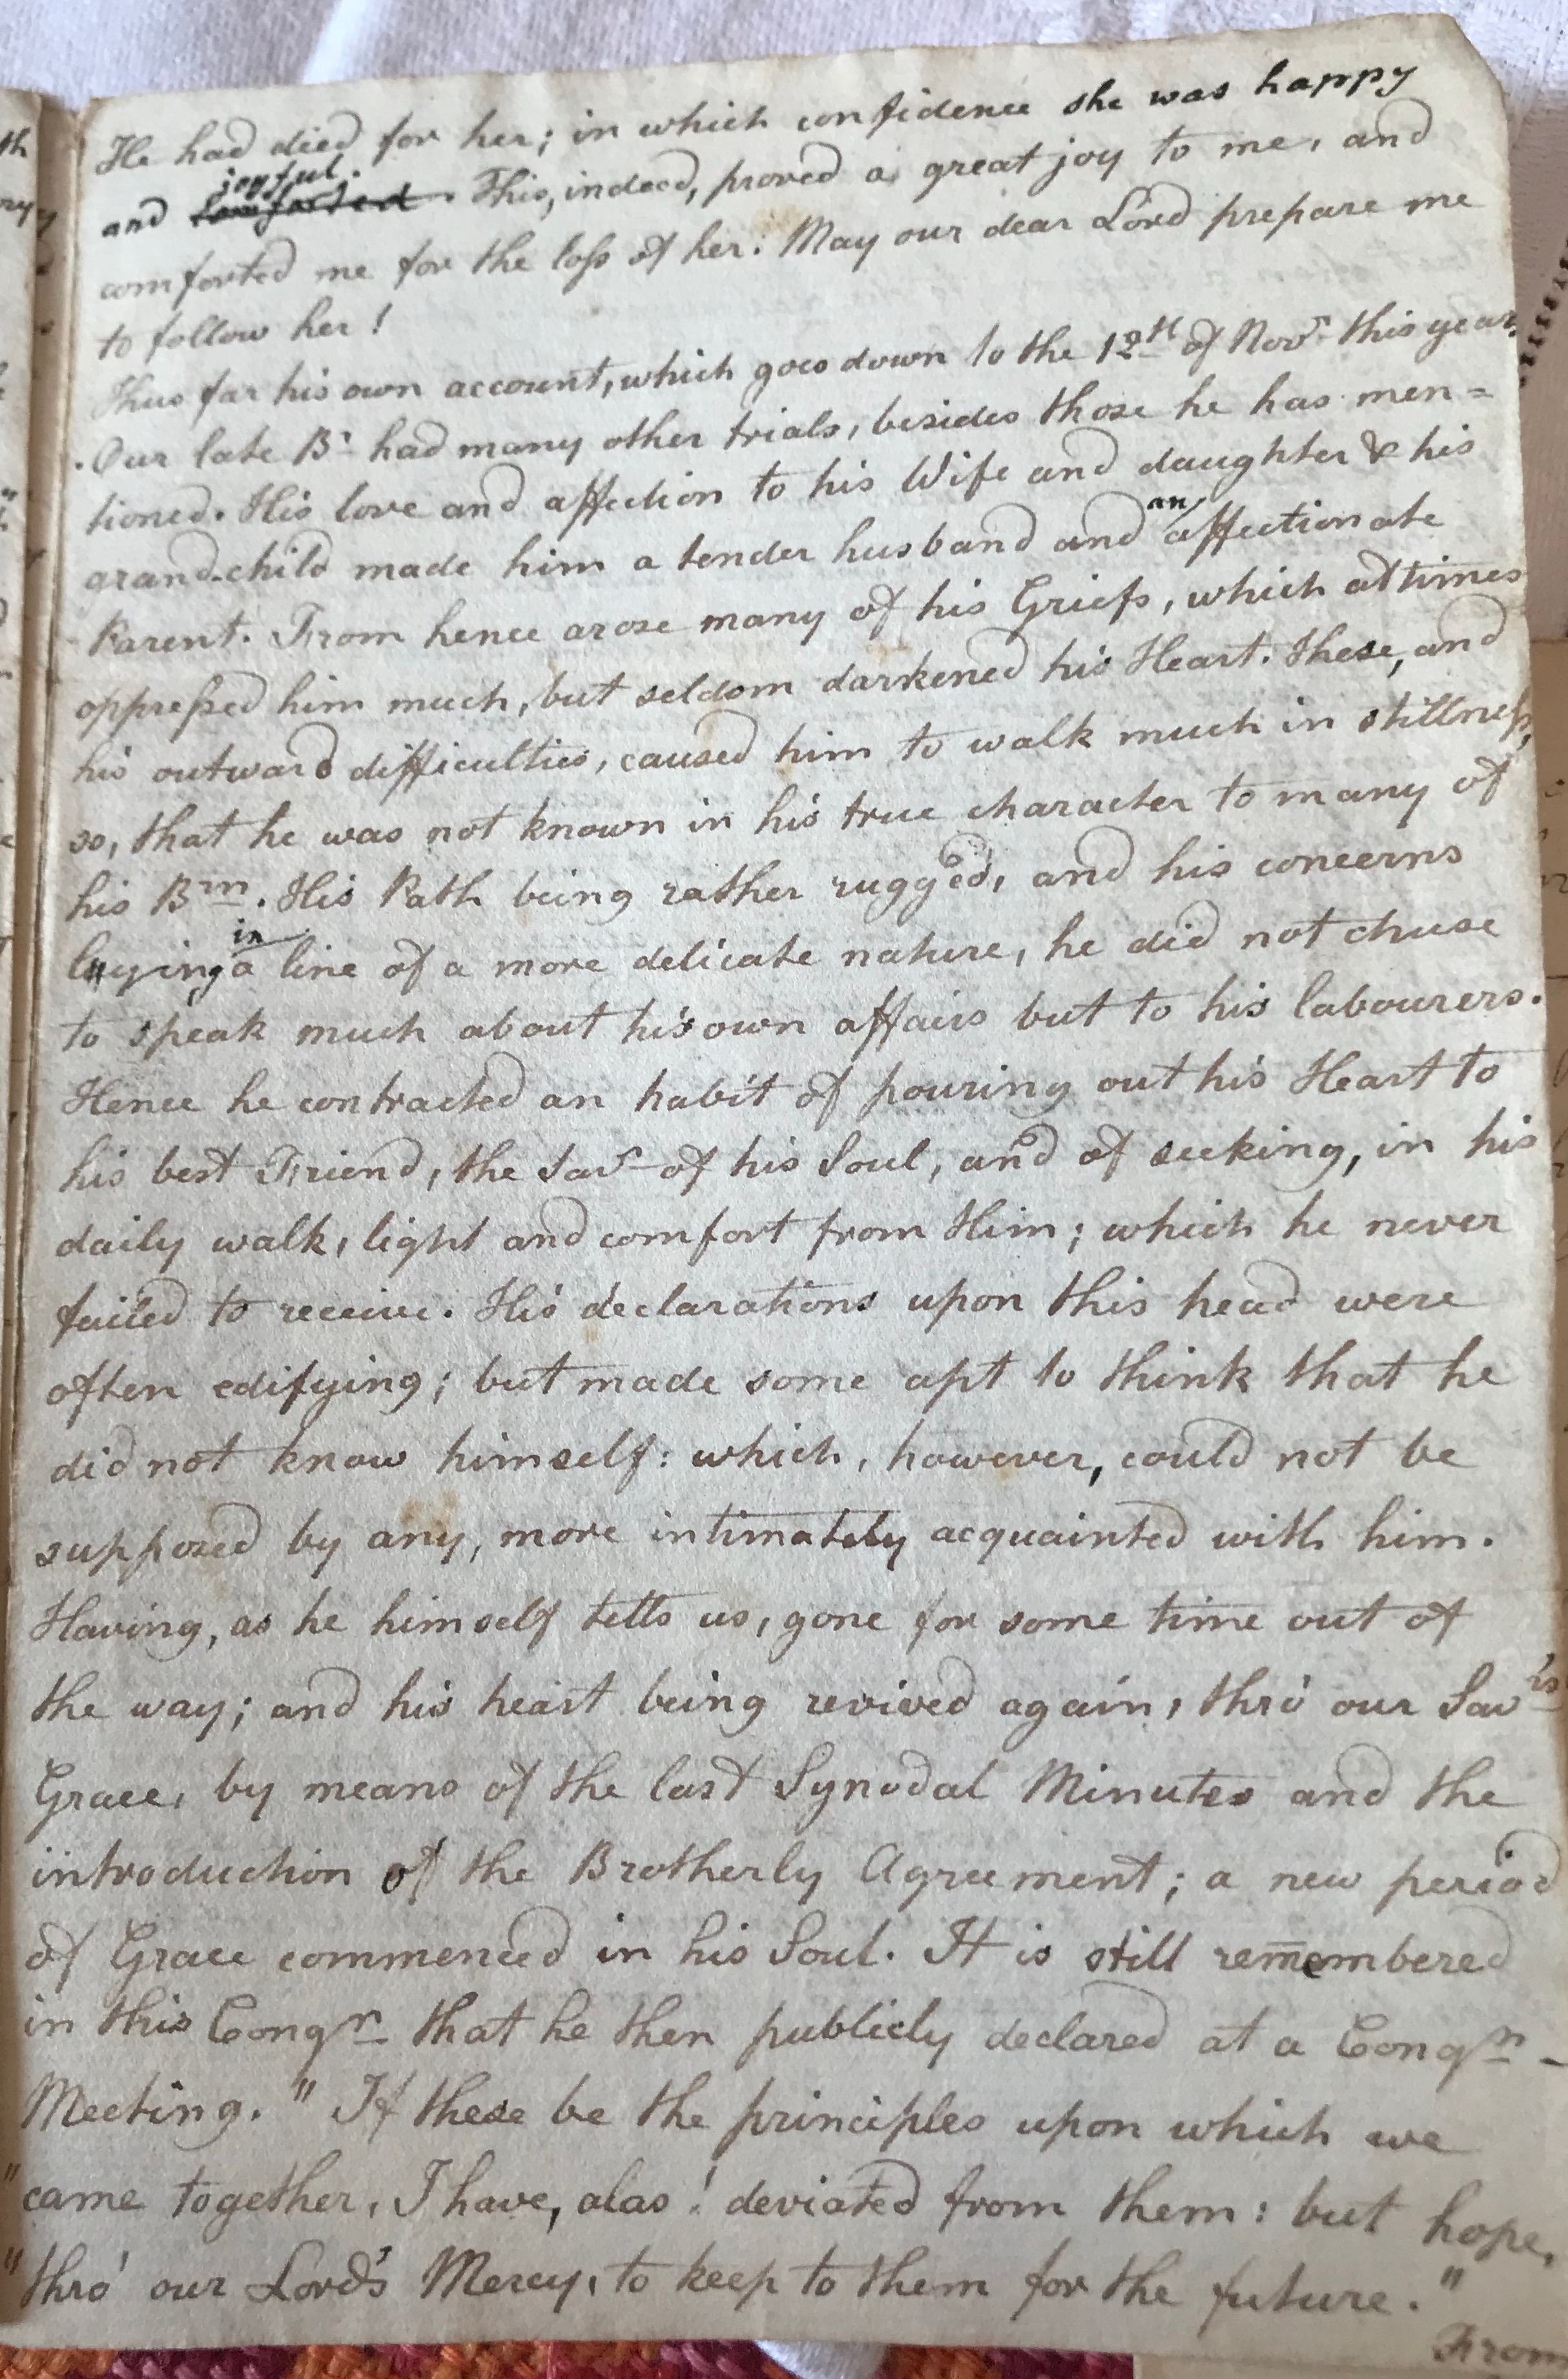 He had died for her; in which confidence she was happy
joyful.
and comforted. This, indeed, proved a great joy to me, and
comforted me for the loss of her: May our dear Lord prepare me
to follow her!
Thus far his own account, which goes down to the 12th of Novr this year.
Our late Br had many other trials, besides those he has men=
tioned. His love and affection to his Wife and daughter & his
an
grand-child made him a tender husband and affectionate
Parent. From hence arose many of his Griefs, which at times
oppressed him much, but seldom darkened his Heart. These, and
his outward difficulties, caused him to walk much in stillness,
so, that he was not known in his true character to many of
his Brn. His Path being rather rugged, and his concerns
in
lying a line of a more delicate nature, he did not chuse
to speak much about his own affairs but to his labourers.
Hence he contracted an habit of pouring out his Heart to
his best Friend, the Savr of his Soul, and of seeking, in his
daily walk, light and comfort from Him; which he never
failed to receive. His declarations upon this head were
often edifying; but made some apt to think that he
did not know himself: which, however, could not be
supposed by any, more intimately acquainted with him.
Having, as he himself tells us, gone for some time out of
the way; and his heart being revived again, thro' our Savr's
Grace, by means of the last Synodal Minutes and the
introduction of the Brotherly Agreement; a new period
of Grace commenced in his Soul. It is still remembered
in this Congn that he then publicly declared at a Congn-
Meeting. "If these be the principles upon which we
"came together, I have, alas! deviated from them: but hope,
"thro' our Lord's Mercy, to keep to them for the future."
From